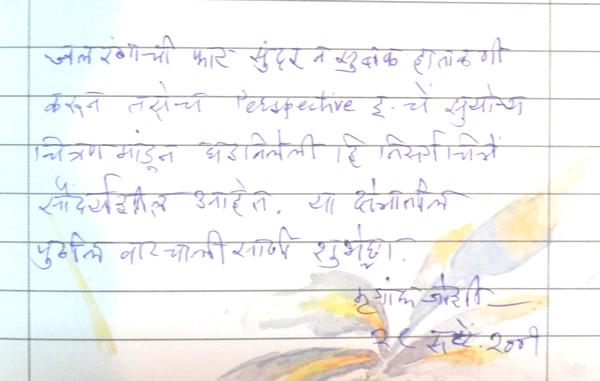 जलरंगाची फार सुंदर व सुबक हाताळणी
करून तसेच Perspective इ. चे सुयोग्य
चित्रण मांडून घडविलेली हि निसर्गचित्रे
सौंदर्यशील आहेत. या क्षेत्रातील
पुढील वाटचाली साठी शुभेच्छा.
जोशी